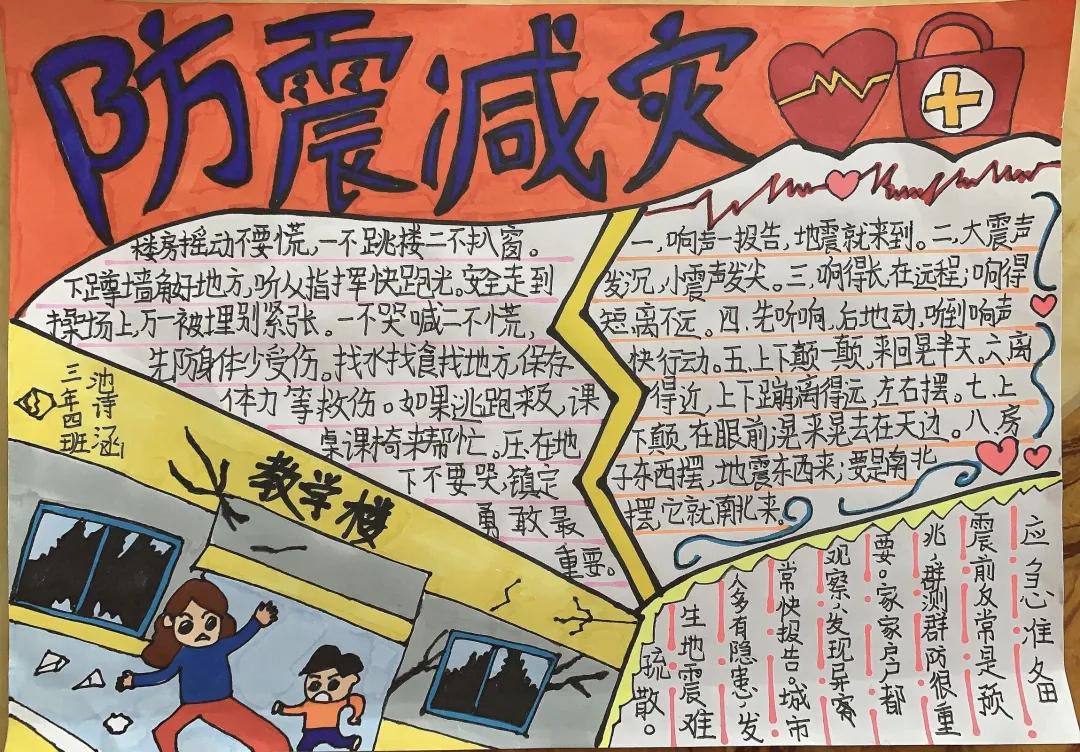 防震减灾
楼房摇动不要慌,一不跳楼二不扒窗。
下蹲墙角好地方,听从指挥快跑光。安全走到
操场上,万一被埋别紧张。一不哭喊二不慌,
先防身体少受伤。找水找食找地方,保存
体力等救伤。如果逃跑来不及,课
桌课椅来帮忙。压在地
下不要哭,镇定
勇敢最
重要。
一,响声一报告,地震就来到。二,大震声
发沉,小震声发尖。三,响得长,在远程,响得
短,离不远。四,先听响,后地动,听到响声
快行动。五,上下颠一颠,来回晃半天。六,离
得近,上下蹦,离得远,左右摆。七,上
下颠,在眼前,晃来晃去在天边。八,房
子东西摆,地震东西来,要是南北
摆,它就南北来。
三年四班
池诗涵
教学楼
应急准备
震前反常是预
兆,群测群防很重
要。家家户户都
观察,发现异常
常快报告。城市
人多有隐患,发
生地震难
疏散。